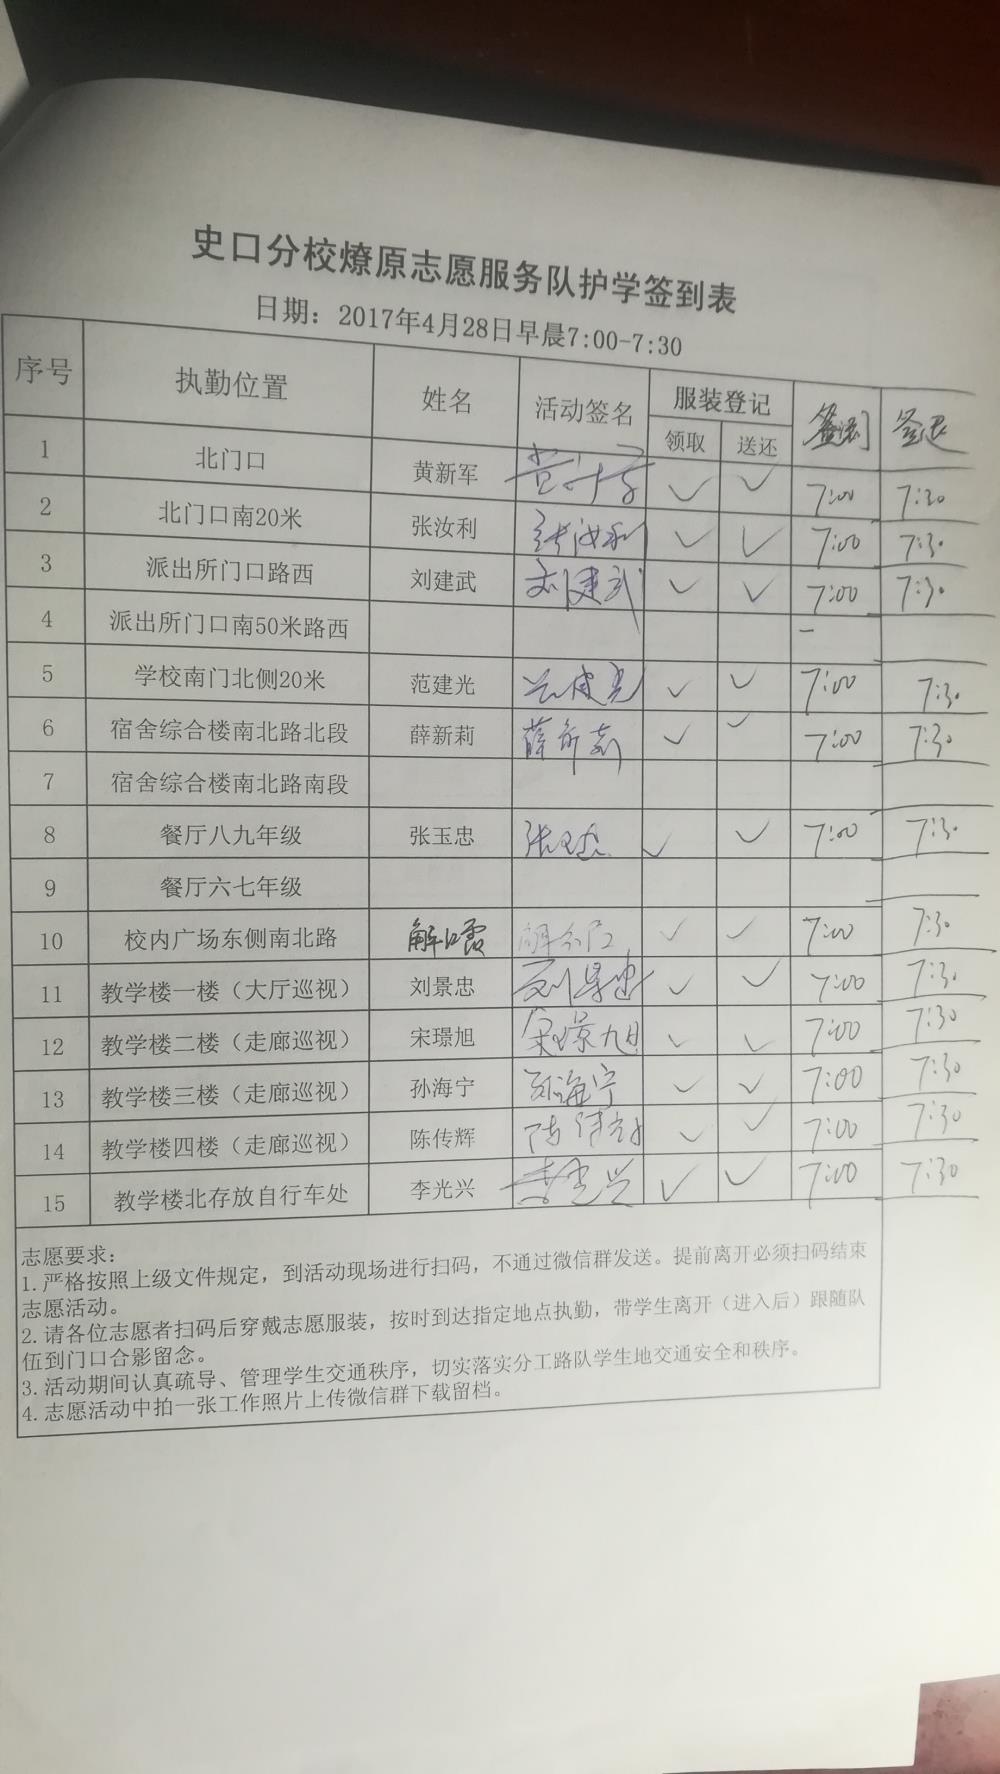 史口分校燎原志愿服务队护学签到表
日期：2017年4月28日早晨7:00-7:30
序号 执勤位置 姓名 活动签名 服装登记 签到 签退
领取 送还
1 北门口 黄新军 黄新军 ✓ ✓ 7:00 7:30
2 北门口南20米 张汝利 张汝利 ✓ ✓ 7:00 7:30
3 派出所门口路西 刘建武 刘建武 ✓ ✓ 7:00 7:30
4 派出所门口南50米路西 –
5 学校南门北侧20米 范建光 范建光 ✓ ✓ 7:00 7:30
6 宿舍综合楼南北路北段 薛新莉 薛新莉 ✓ ✓ 7:00 7:30
7 宿舍综合楼南北路南段
8 餐厅八九年级 张玉忠 张玉忠 ✓ ✓ 7:00 7:30
9 餐厅六七年级
10 校内广场东侧南北路 ✓ ✓ 7:00 7:30
11 教学楼一楼（大厅巡视） 刘景忠 刘景忠 ✓ ✓ 7:00 7:30
12 教学楼二楼（走廊巡视） 宋璟旭 宋璟旭 ✓ ✓ 7:00 7:30
13 教学楼三楼（走廊巡视） 孙海宁 孙海宁 ✓ ✓ 7:00 7:30
14 教学楼四楼（走廊巡视） 陈传辉 陈传辉 ✓ ✓ 7:00 7:30
15 教学楼北存放自行车处 李光兴 李光兴 ✓ ✓ 7:00 7:30
志愿要求：
1.严格按照上级文件规定，到活动现场进行扫码，不通过微信群发送。提前离开必须扫码结束
志愿活动。
2.请各位志愿者扫码后穿戴志愿服装，按时到达指定地点执勤，带学生离开（进入后）跟随队
伍到门口合影留念。
3.活动期间认真疏导、管理学生交通秩序，切实落实分工路队学生地交通安全和秩序。
4.志愿活动中拍一张工作照片上传微信群下载留档。